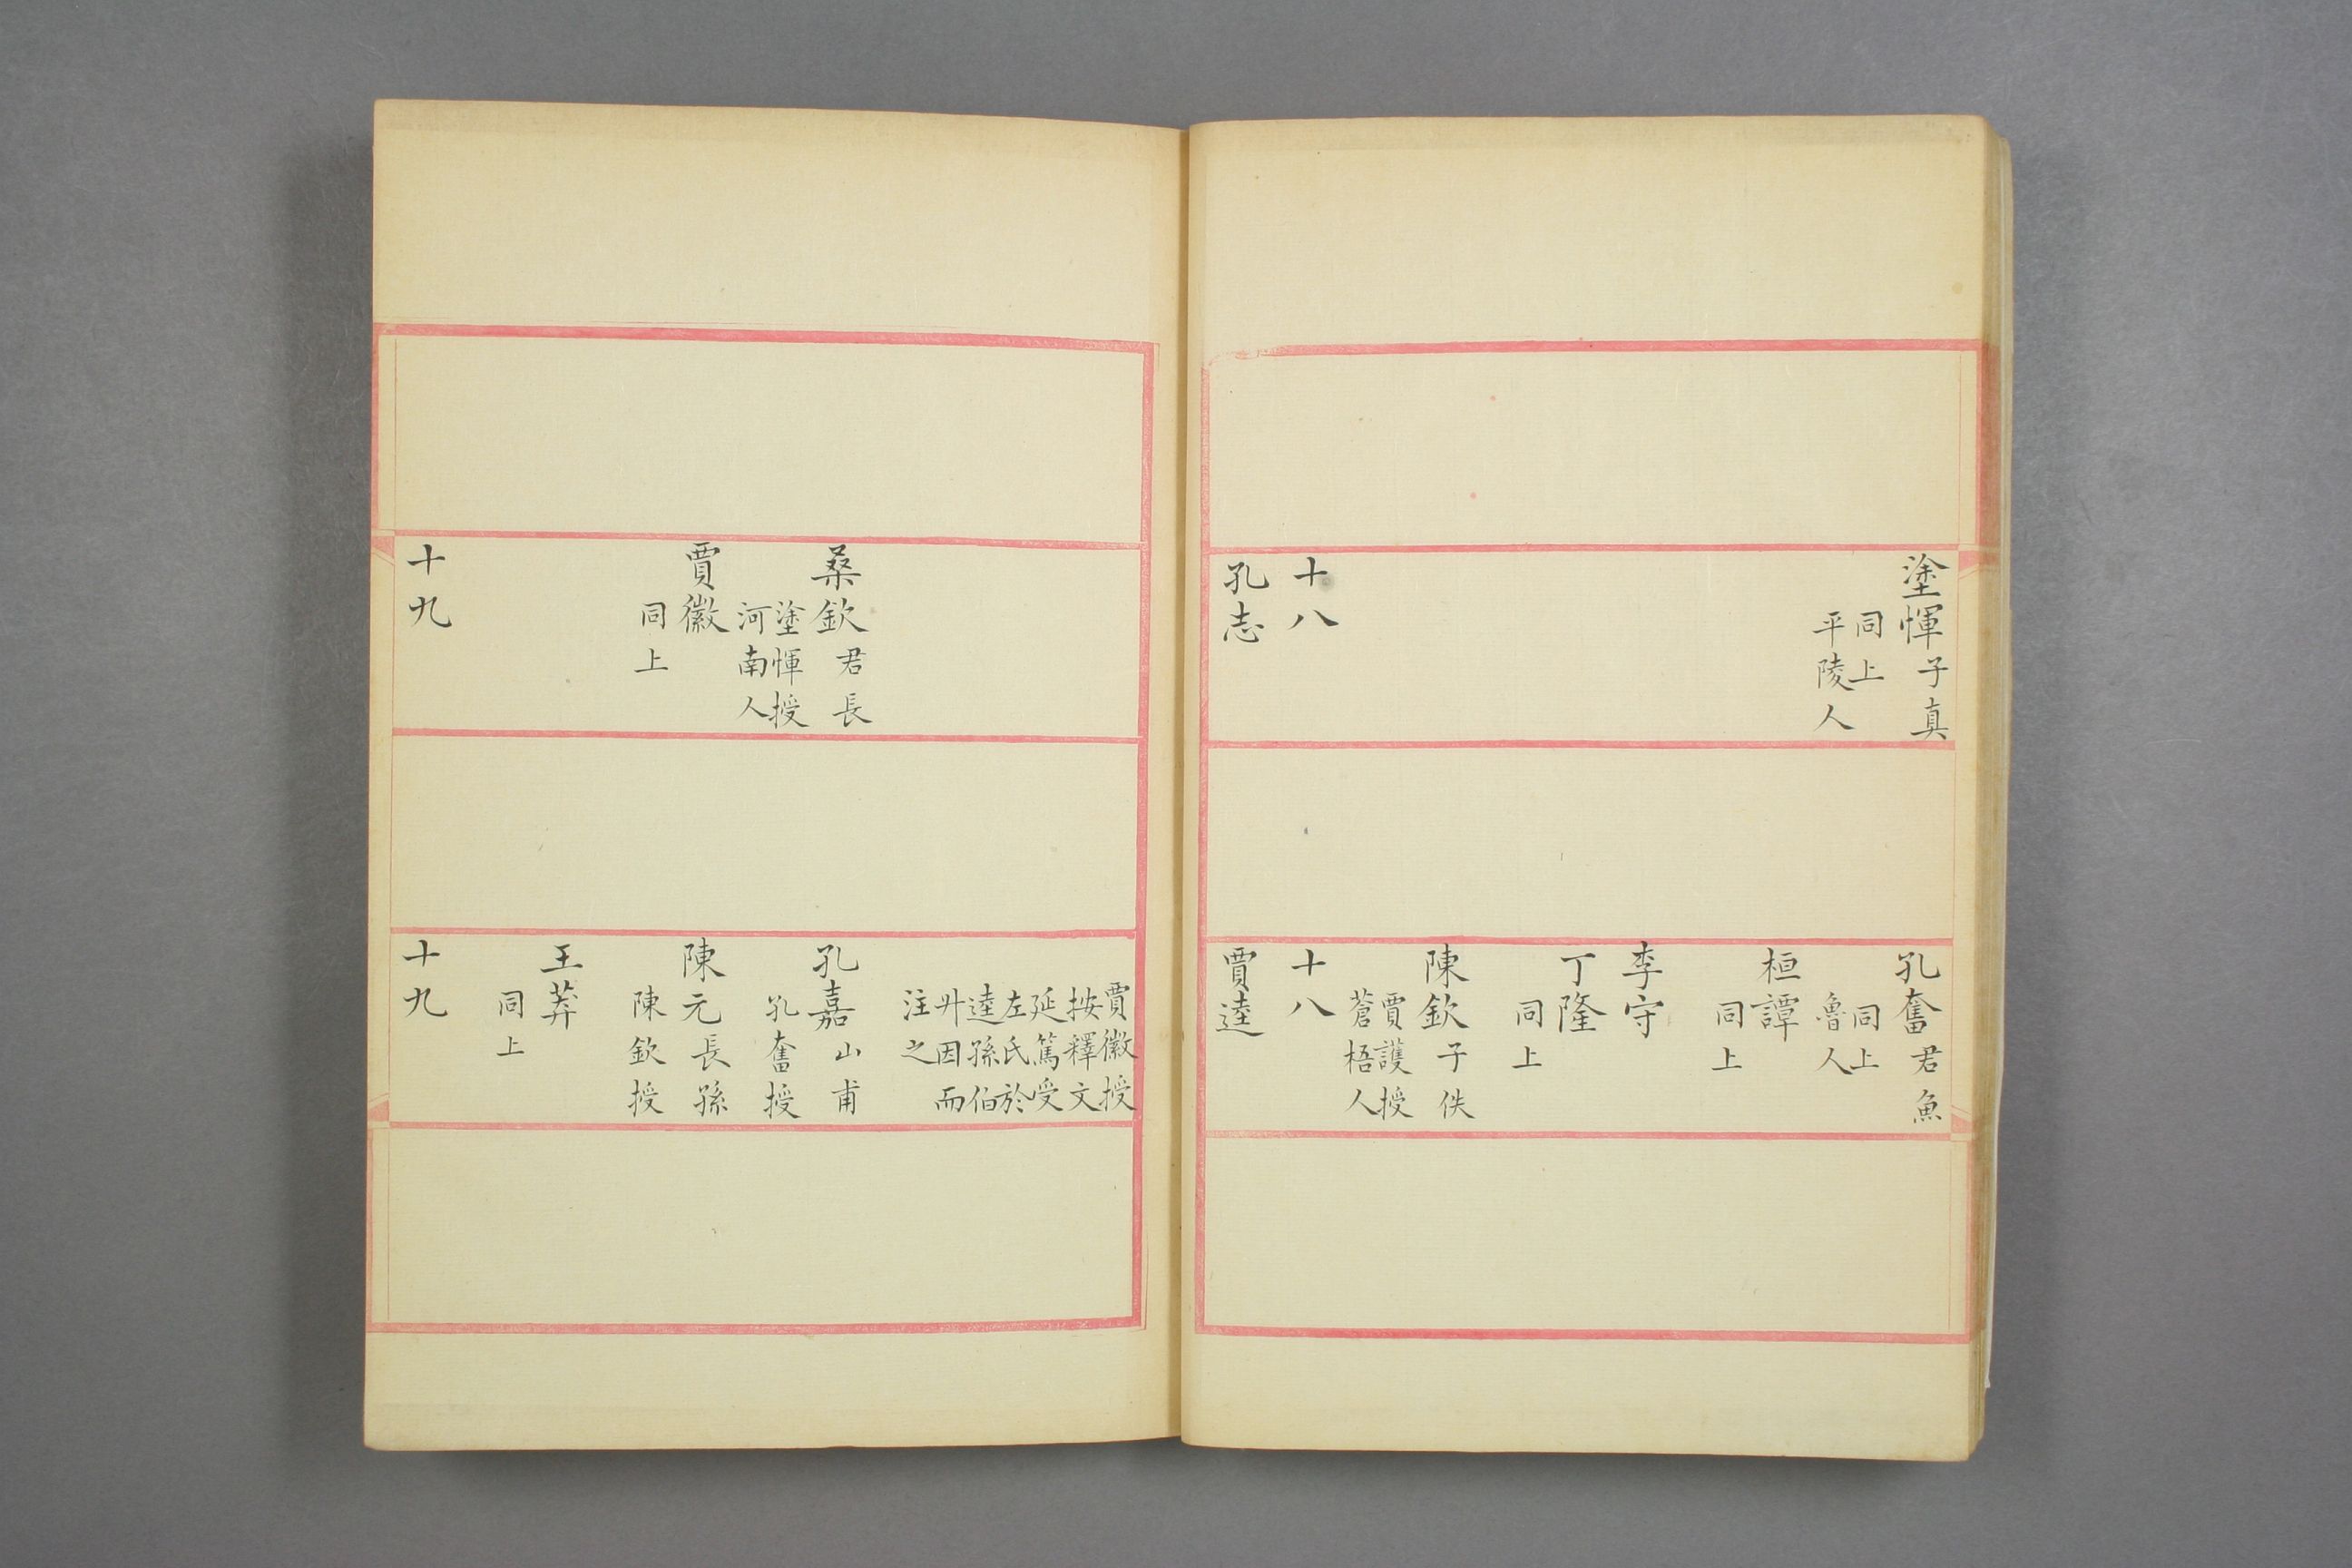 塗惲子真
同上
平陵人
十八
孔志
孔奮君魚
同上
魯人
桓譚
同上
李守
丁隆
同上
陳欽子佚
賈護授
蒼梧人
十八
賈逵
桑欽君長
塗惲授
河南人
賈徽
同上
十九
賈徽授
按釋文
延篤受
左氏於
逵孫伯
升因而
注之
孔嘉山甫
孔奮授
陳元長孫
陳欽授
王莽
同上
十九